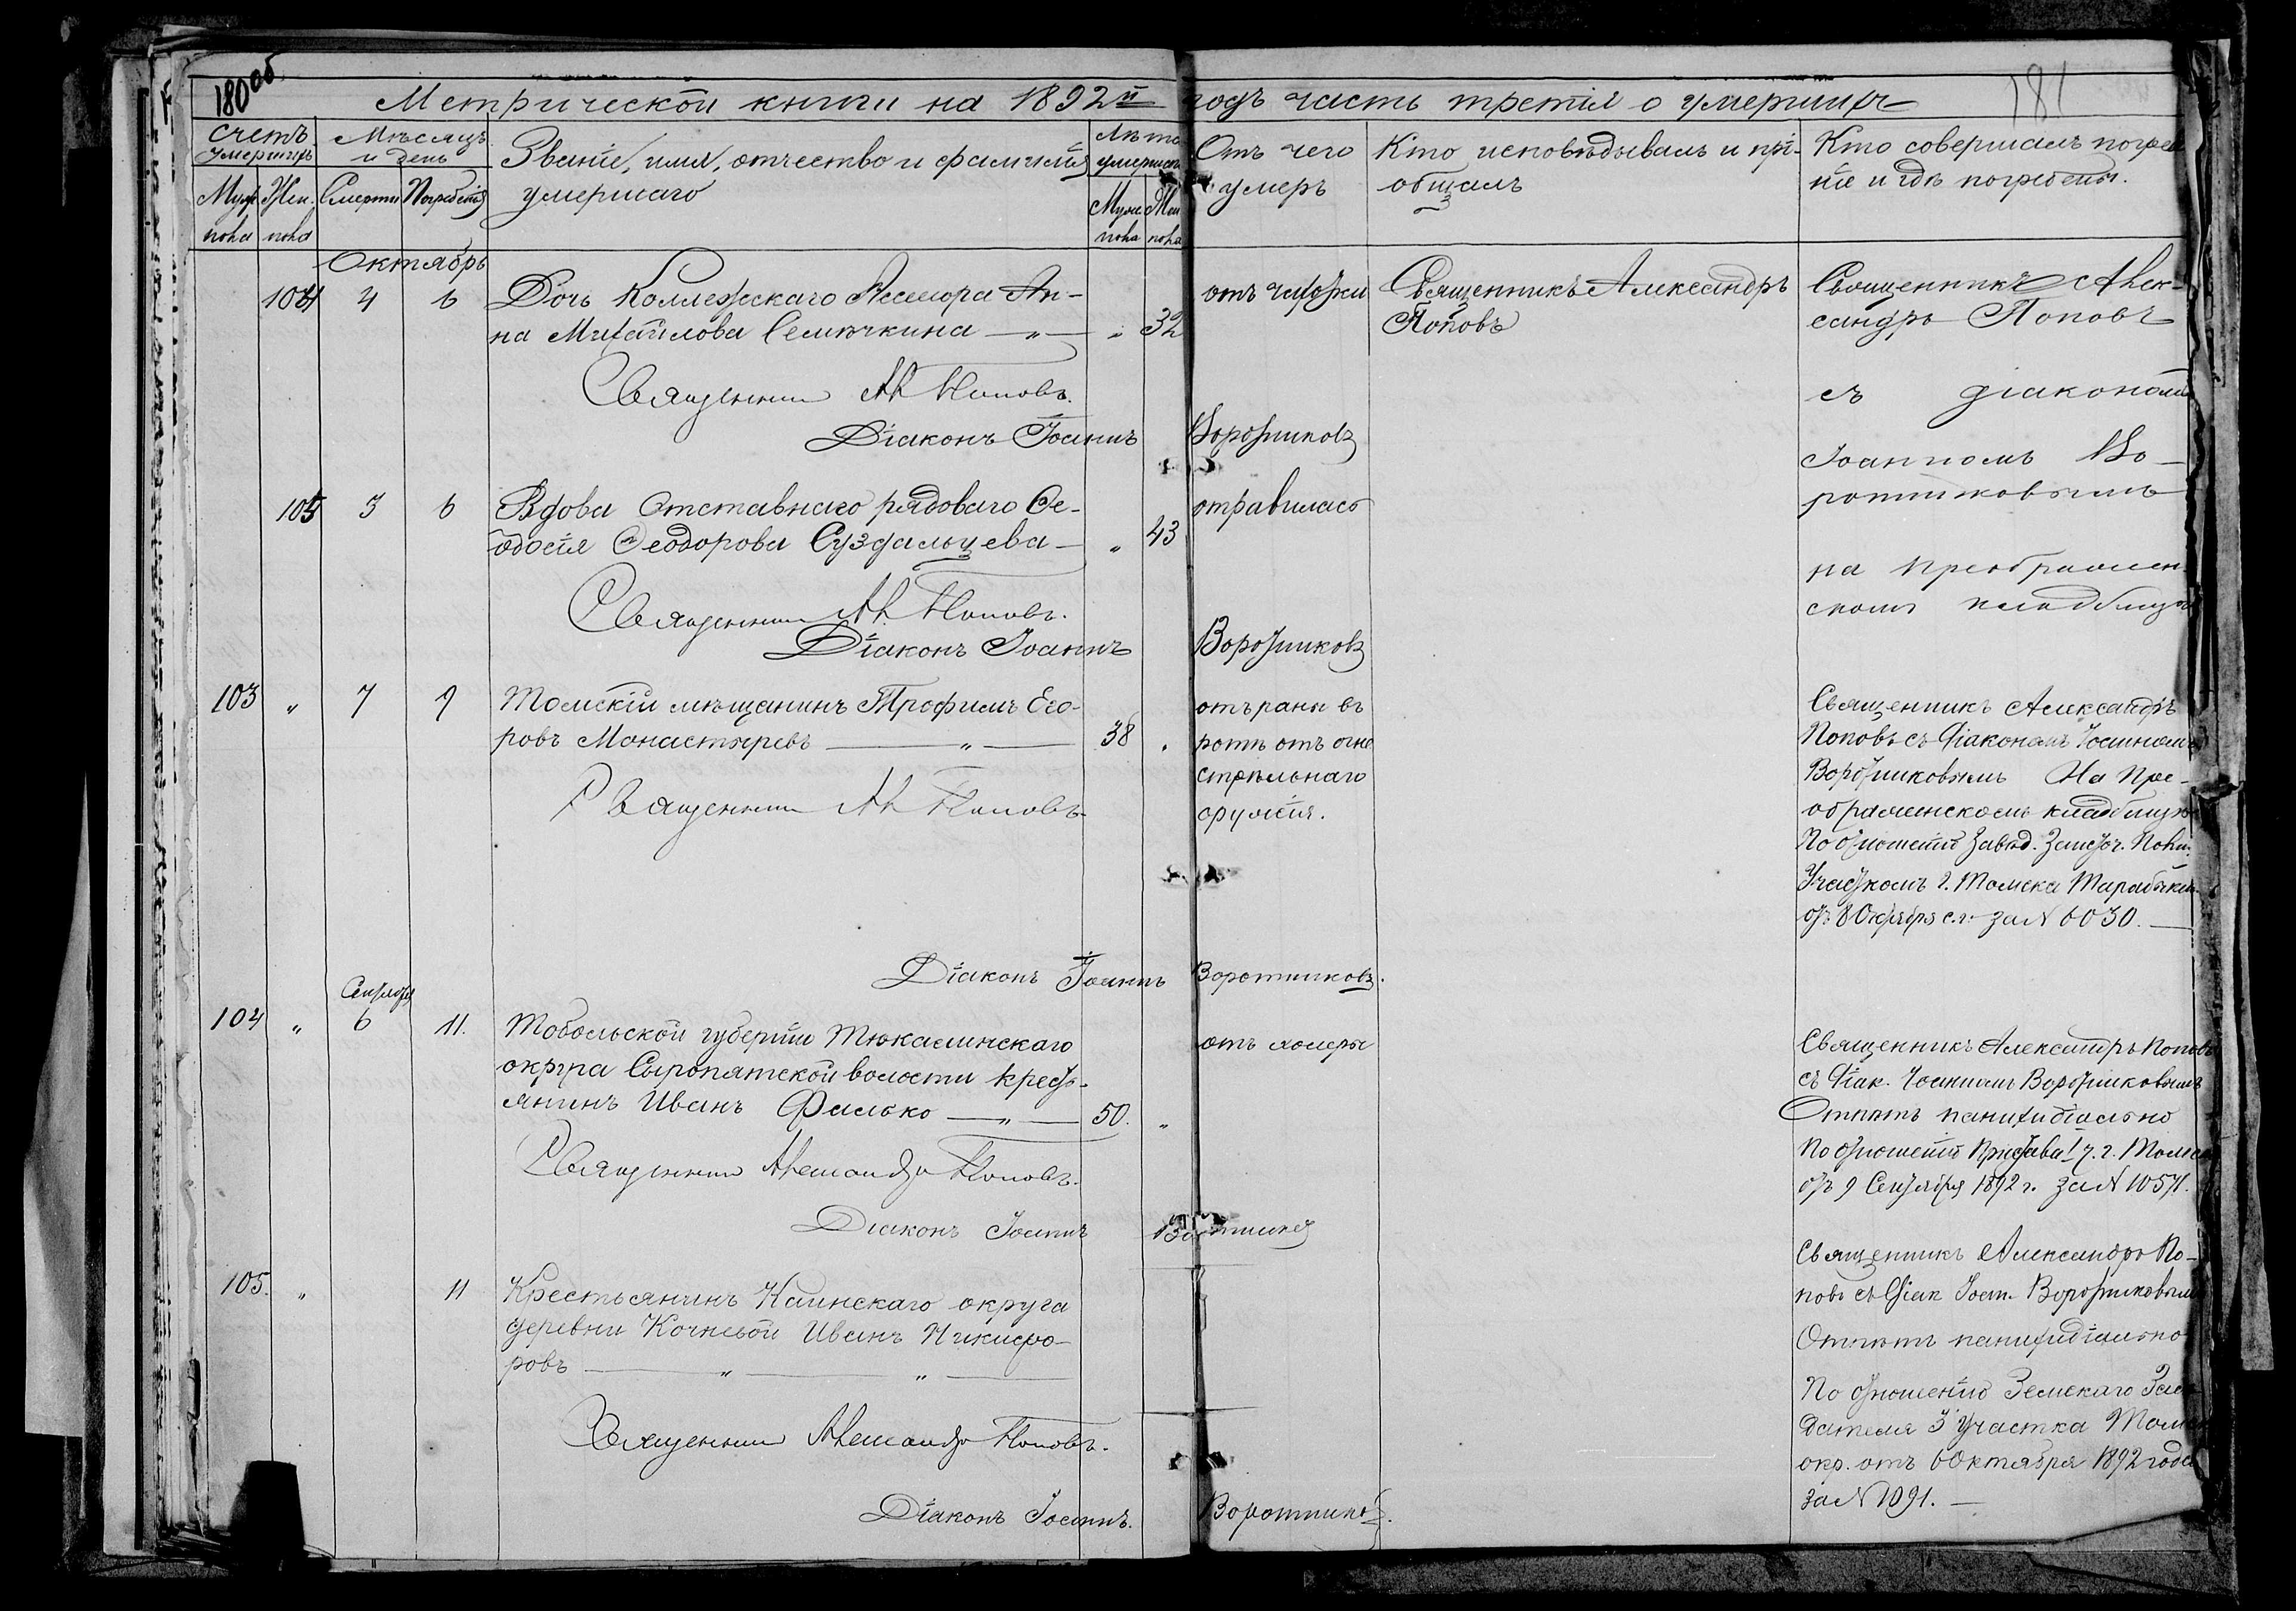 180 об
181
Метрической книги на 1892й годъ часть третія о умершихъ
Счетъ умершихъ
Мѣсяцъ и день
Званіе, имя, отчество и фамилія умершаго
Лѣта умершаго
Отъ чего умеръ
Кто исповѣдывалъ и прі-
общалъ
Кто совершалъ погребе
ніе и гдѣ погребены.
Муж. пола
Жен. пола
Смерти
Погребенія
Муж. пола
Жен. пола
Октябрь
104 4 6 Дочь Коллежскаго Ассесора Ан-
на Михайлова Семячкина — „ — „ 32
отъ чахотки
Священникъ Александръ
Поповъ
Священникъ Алек-
сандръ Поповъ
съ діакономъ
Іоанномъ Во-
ротниковымъ
на Преображен
скомъ кладбищѣ
Священникъ Ал Поповъ.
Діаконъ Іоаннъ Воротниковъ
105 3 6 Вдова Отставнаго рядоваго Ѳе-
одосія Ѳеодорова Суздальцева — „ 43
отравилась
Священникъ Ал. Поповъ.
Діаконъ Іоаннъ Воротниковъ
103 „ 7 9 Томскій мѣщанинъ Трофимъ Его-
ровъ Монастыревъ — „ — 38 „
отъ раны въ
ротъ отъ огне
стрѣльнаго
оружія.
Священникъ Александръ
Поповъ съ Діакономъ Іоанномъ
Воротниковымъ На Пре-
ображенскомъ кладбищѣ
По отношенію Завѣд. Заисточ. Поли.
Участкомъ г. Томска
отъ 8 Октября с.г. за № 6030. —
Священникъ Ал Поповъ
Діаконъ Іоаннъ Воротниковъ.
Сентября
104 „ 6 11. Тобольской губерніи Тюкалинскаго
округа Сыропятской волости крест-
янинъ Иванъ Фалько — „ — 50. „
отъ холеры
Священникъ Александръ Поповъ
съ Діак. Іоанномъ Воротниковымъ
Отпѣтъ панихидіально
По отношенію Пристава I ч. г. Томска
отъ 9 Сентября 1892 г. за № 10571.
Священникъ Александръ Поповъ.
Діаконъ Іоаннъ
105. „ 11 Крестьянинъ Каинскаго округа
деревни Кочневой Иванъ Никифо-
ровъ — „ — „ —
Священникъ Александръ По-
повъ съ Діак Іоан. Воротниковымъ
Отпѣтъ панихидіально
По отношенію Земскаго Засѣ
дателя 3 Участка Томск
окр. отъ 6 Октября 1892 года
за № 1091. —
Священникъ Александръ Поповъ.
Діаконъ Іоаннъ. Воротниковъ.